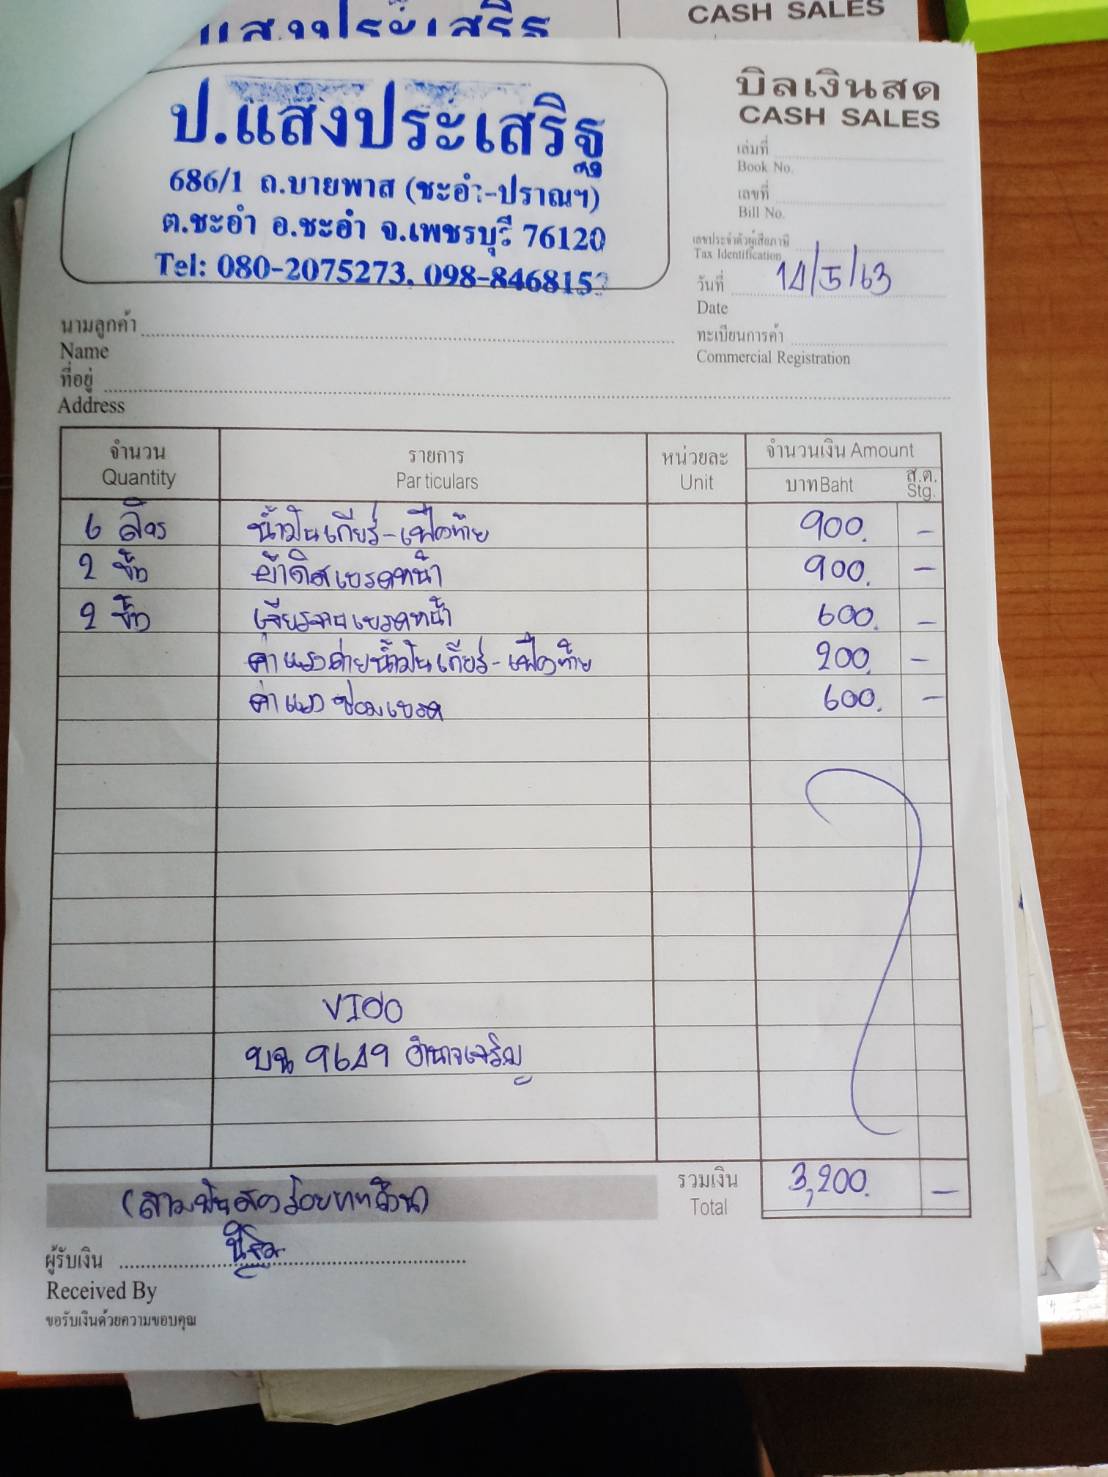 แสงประเสริฐ
CASH SALES
ป.แสงประเสริฐ
686/1 ถ.บายพาส (ชะอำ-ปราณฯ)
ต.ชะอำ อ.ชะอำ จ.เพชรบุรี 76120
Tel: 080-2075273, 098-8468152
บิลเงินสด
CASH SALES
เล่มที่
Book No.
เลขที่
Bill No.
เลขประจำตัวผู้เสียภาษี
Tax Identification
วันที่ 14/5/63
Date
ทะเบียนการค้า
Commercial Registration
นามลูกค้า
Name
ที่อยู่
Address
จำนวน รายการ หน่วยละ จำนวนเงิน Amount
Quantity Particulars Unit บาท Baht ส.ต. Stg.
6 ลิตร น้ำมันเกียร์-เฟืองท้าย 900. -
2 ชิ้น ผ้าดิสเบรคหน้า 900. -
2 ชิ้น เจียรจานเบรคหน้า 600. -
ค่าแรงถ่ายน้ำมันเกียร์-เฟืองท้าย 200. -
ค่าแรงซ่อมเบรค 600. -
VIGO
บฉ 9649 อำนาจเจริญ
(สามพันสองร้อยบาทถ้วน)
รวมเงิน 3,200. -
Total
ผู้รับเงิน
Received By
ขอรับเงินด้วยความขอบคุณ